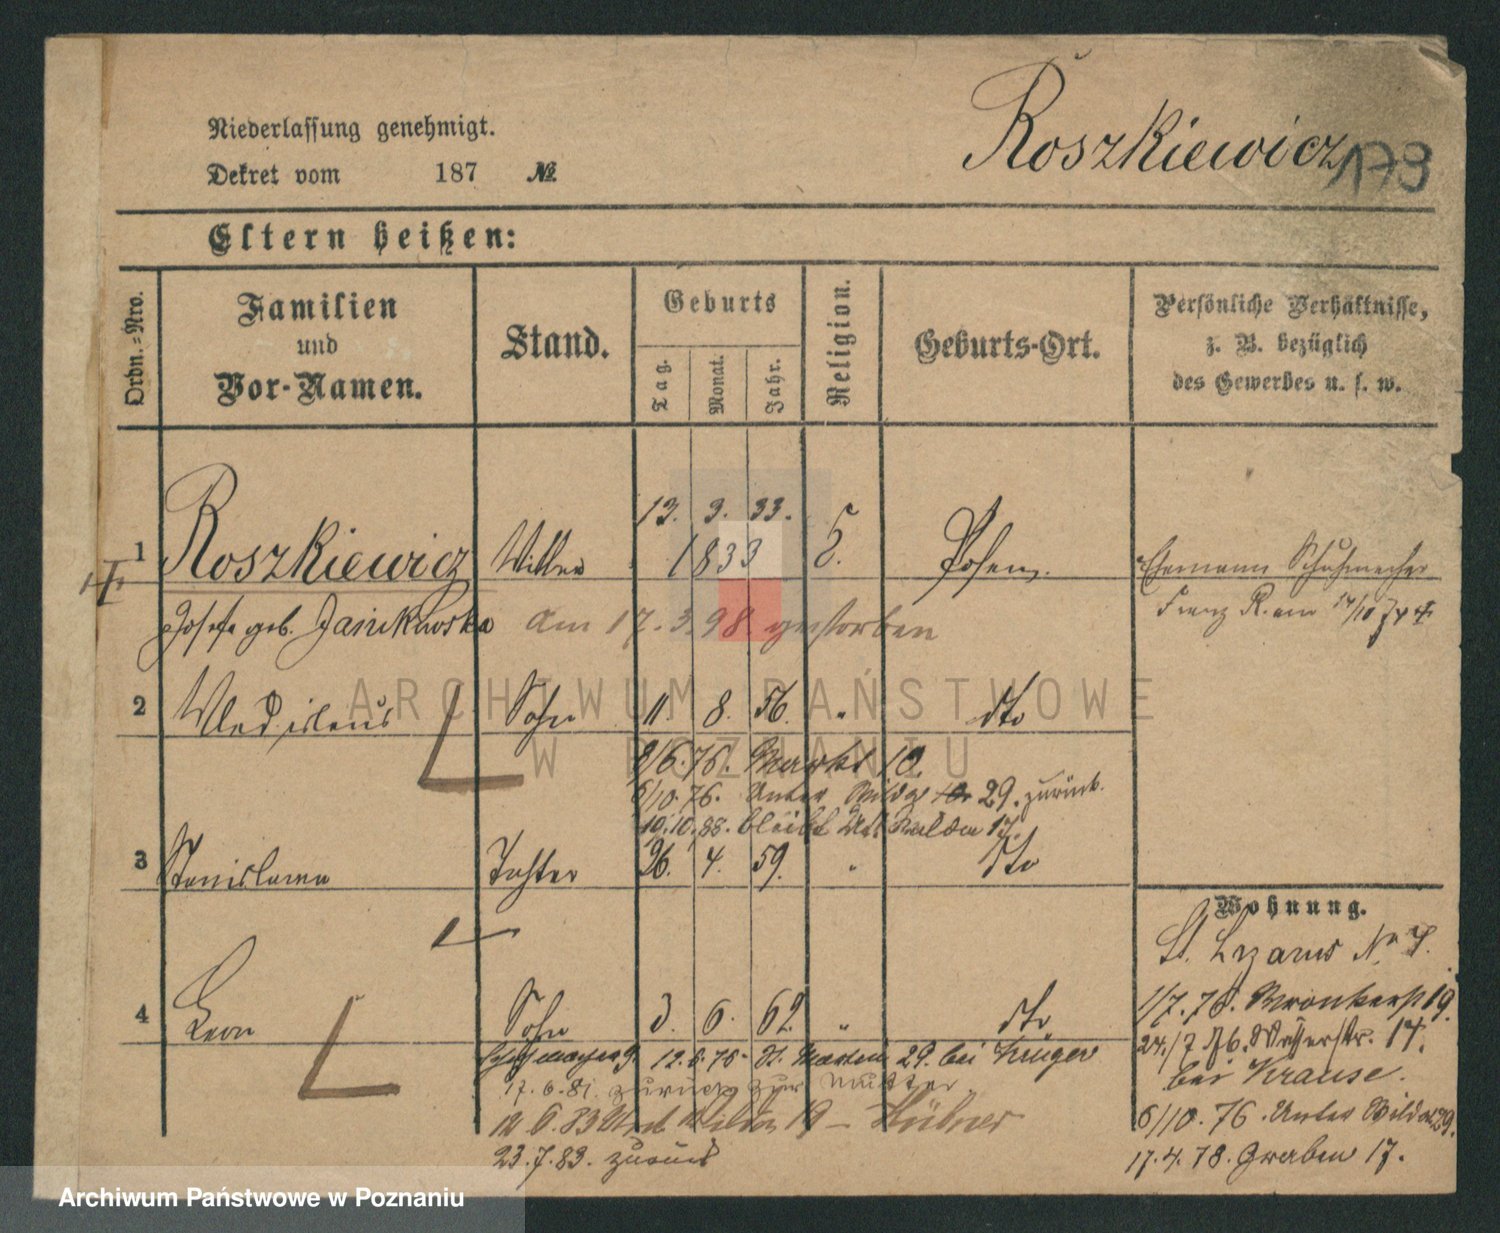 Niederlassung genehmigt.
Roszkiewicz
179
Dekret vom 187 №
Eltern heißen:
Ordn.-Nro.
Familien
und
Vor-Namen.
Stand.
Geburts
Tag.
Monat.
Jahr.
Religion.
Geburts-Ort.
Persönliche Verhältnisse,
z. B. bezüglich
des Gewerbes u. s. w.
1 Roszkiewicz 13. 3. 33. 1833 Posen.
Ehemann Schuhmacher
Franz R. am
Josefa geb. Janikowska am 17. 3. 98 gestorben
2 Wladislaus Sohn 11. 8. 56. " dto
ARCHIWUM PAŃSTWOWE
W POZNANIU
8/6. 76. Markt 10.
6/10. 76. Unter Wilda 29. zurück.
10. 10. 88. bleibt Wilda 17.
3 Stanislawa Tochter 26. 4. 59. " dto
Wohnung.
St. Lazarus No
4 Leon Sohn 3. 6. 62. " dto
1/7. 76. Wronkerst 19.
24./7. 76. Wasserstr. 17.
bei Krause.
6/10. 76. Unter Wilda 29.
17. 4. 78. Graben 17.
12. 6. 78. St. Martin 29. bei Krüger
17. 6. 81. zurück zur Mutter
6. 83 Wilda 19 – Hübner
23. 7. 83. zurück
Archiwum Państwowe w Poznaniu